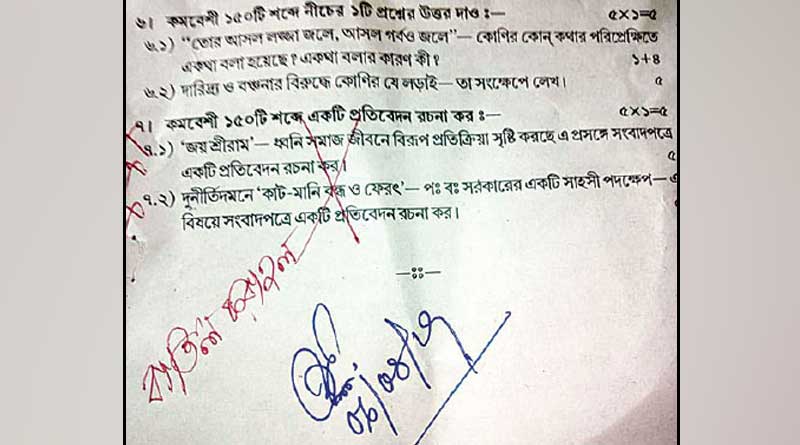 ৬। কমবেশী ১৫০টি শব্দে নীচের ১টি প্রশ্নের উত্তর দাও :— ৫×১=৫
৬.১) "তোর আসল লজ্জা জলে, আসল গর্বও জলে"— কোণির কোন্ কথার পরিপ্রেক্ষিতে
একথা বলা হয়েছে? একথা বলার কারণ কী? ১+৪
৬.২) দারিদ্র্য ও বঞ্চনার বিরুদ্ধে কোণির যে লড়াই— তা সংক্ষেপে লেখ। ৫
৭। কমবেশী ১৫০টি শব্দে একটি প্রতিবেদন রচনা কর :— ৫×১=৫
৭.১) 'জয় শ্রীরাম'— ধ্বনি সমাজ জীবনে বিরূপ প্রতিক্রিয়া সৃষ্টি করছে এ প্রসঙ্গে সংবাদপত্রে
একটি প্রতিবেদন রচনা কর। ৫
৭.২) দুর্নীতিদমনে 'কাট-মানি বন্ধ ও ফেরৎ'— পঃ বঃ সরকারের একটি সাহসী পদক্ষেপ—এ
বিষয়ে সংবাদপত্রে একটি প্রতিবেদন রচনা কর।
বাতিল করা হল